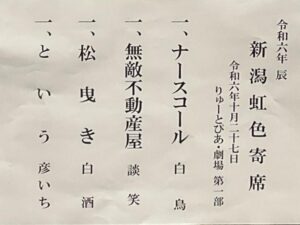 令和六年 辰
新潟虹色寄席
令和六年十月二十七日
りゅーとぴあ・劇場 第一部
一、ナースコール 白鳥
一、無敵不動産屋 談笑
一、松曳き 白酒
一、という 彦いち